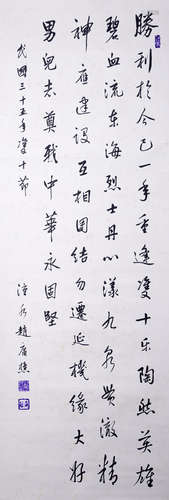 勝利於今已一年重逢雙十樂陶然英雄
碧血流東海烈士丹心漾九泉貫澈精
神應建設互相團結勿遷延機緣大好
男兒志奠我中華永固堅
民國三十五年雙十節
趙